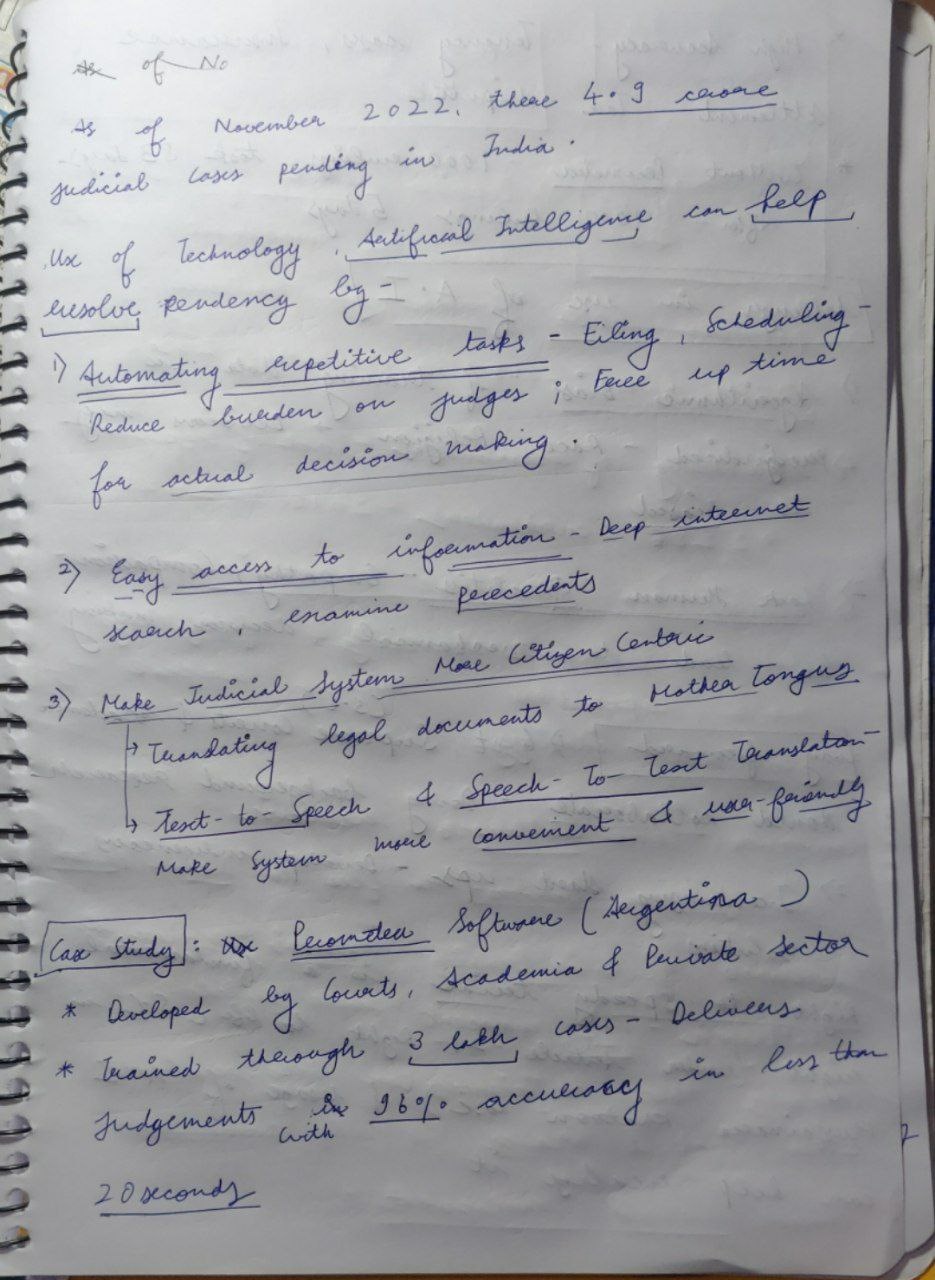 As of No
As of November 2022, there 4.9 crore
judicial cases pending in India.
Use of Technology, Artificial Intelligence can help
resolve pendency by -
1) Automating repetitive tasks - Filing, Scheduling -
Reduce burden on judges ; Free up time
for actual decision making.
2) Easy access to information - Deep internet
search, examine precedents
3) Make Judicial System More Citizen Centric
↳ Translating legal documents to Mother Tongus
↳ Text-to-Speech & Speech-To-Text Translation -
Make System more convenient & user-friendly
Case Study : Promotea Software (Argentina)
* Developed by Courts, Academia & Private sector
* Trained through 3 lakh cases - Delivers
judgements with 96% accuracy in less than
20 seconds